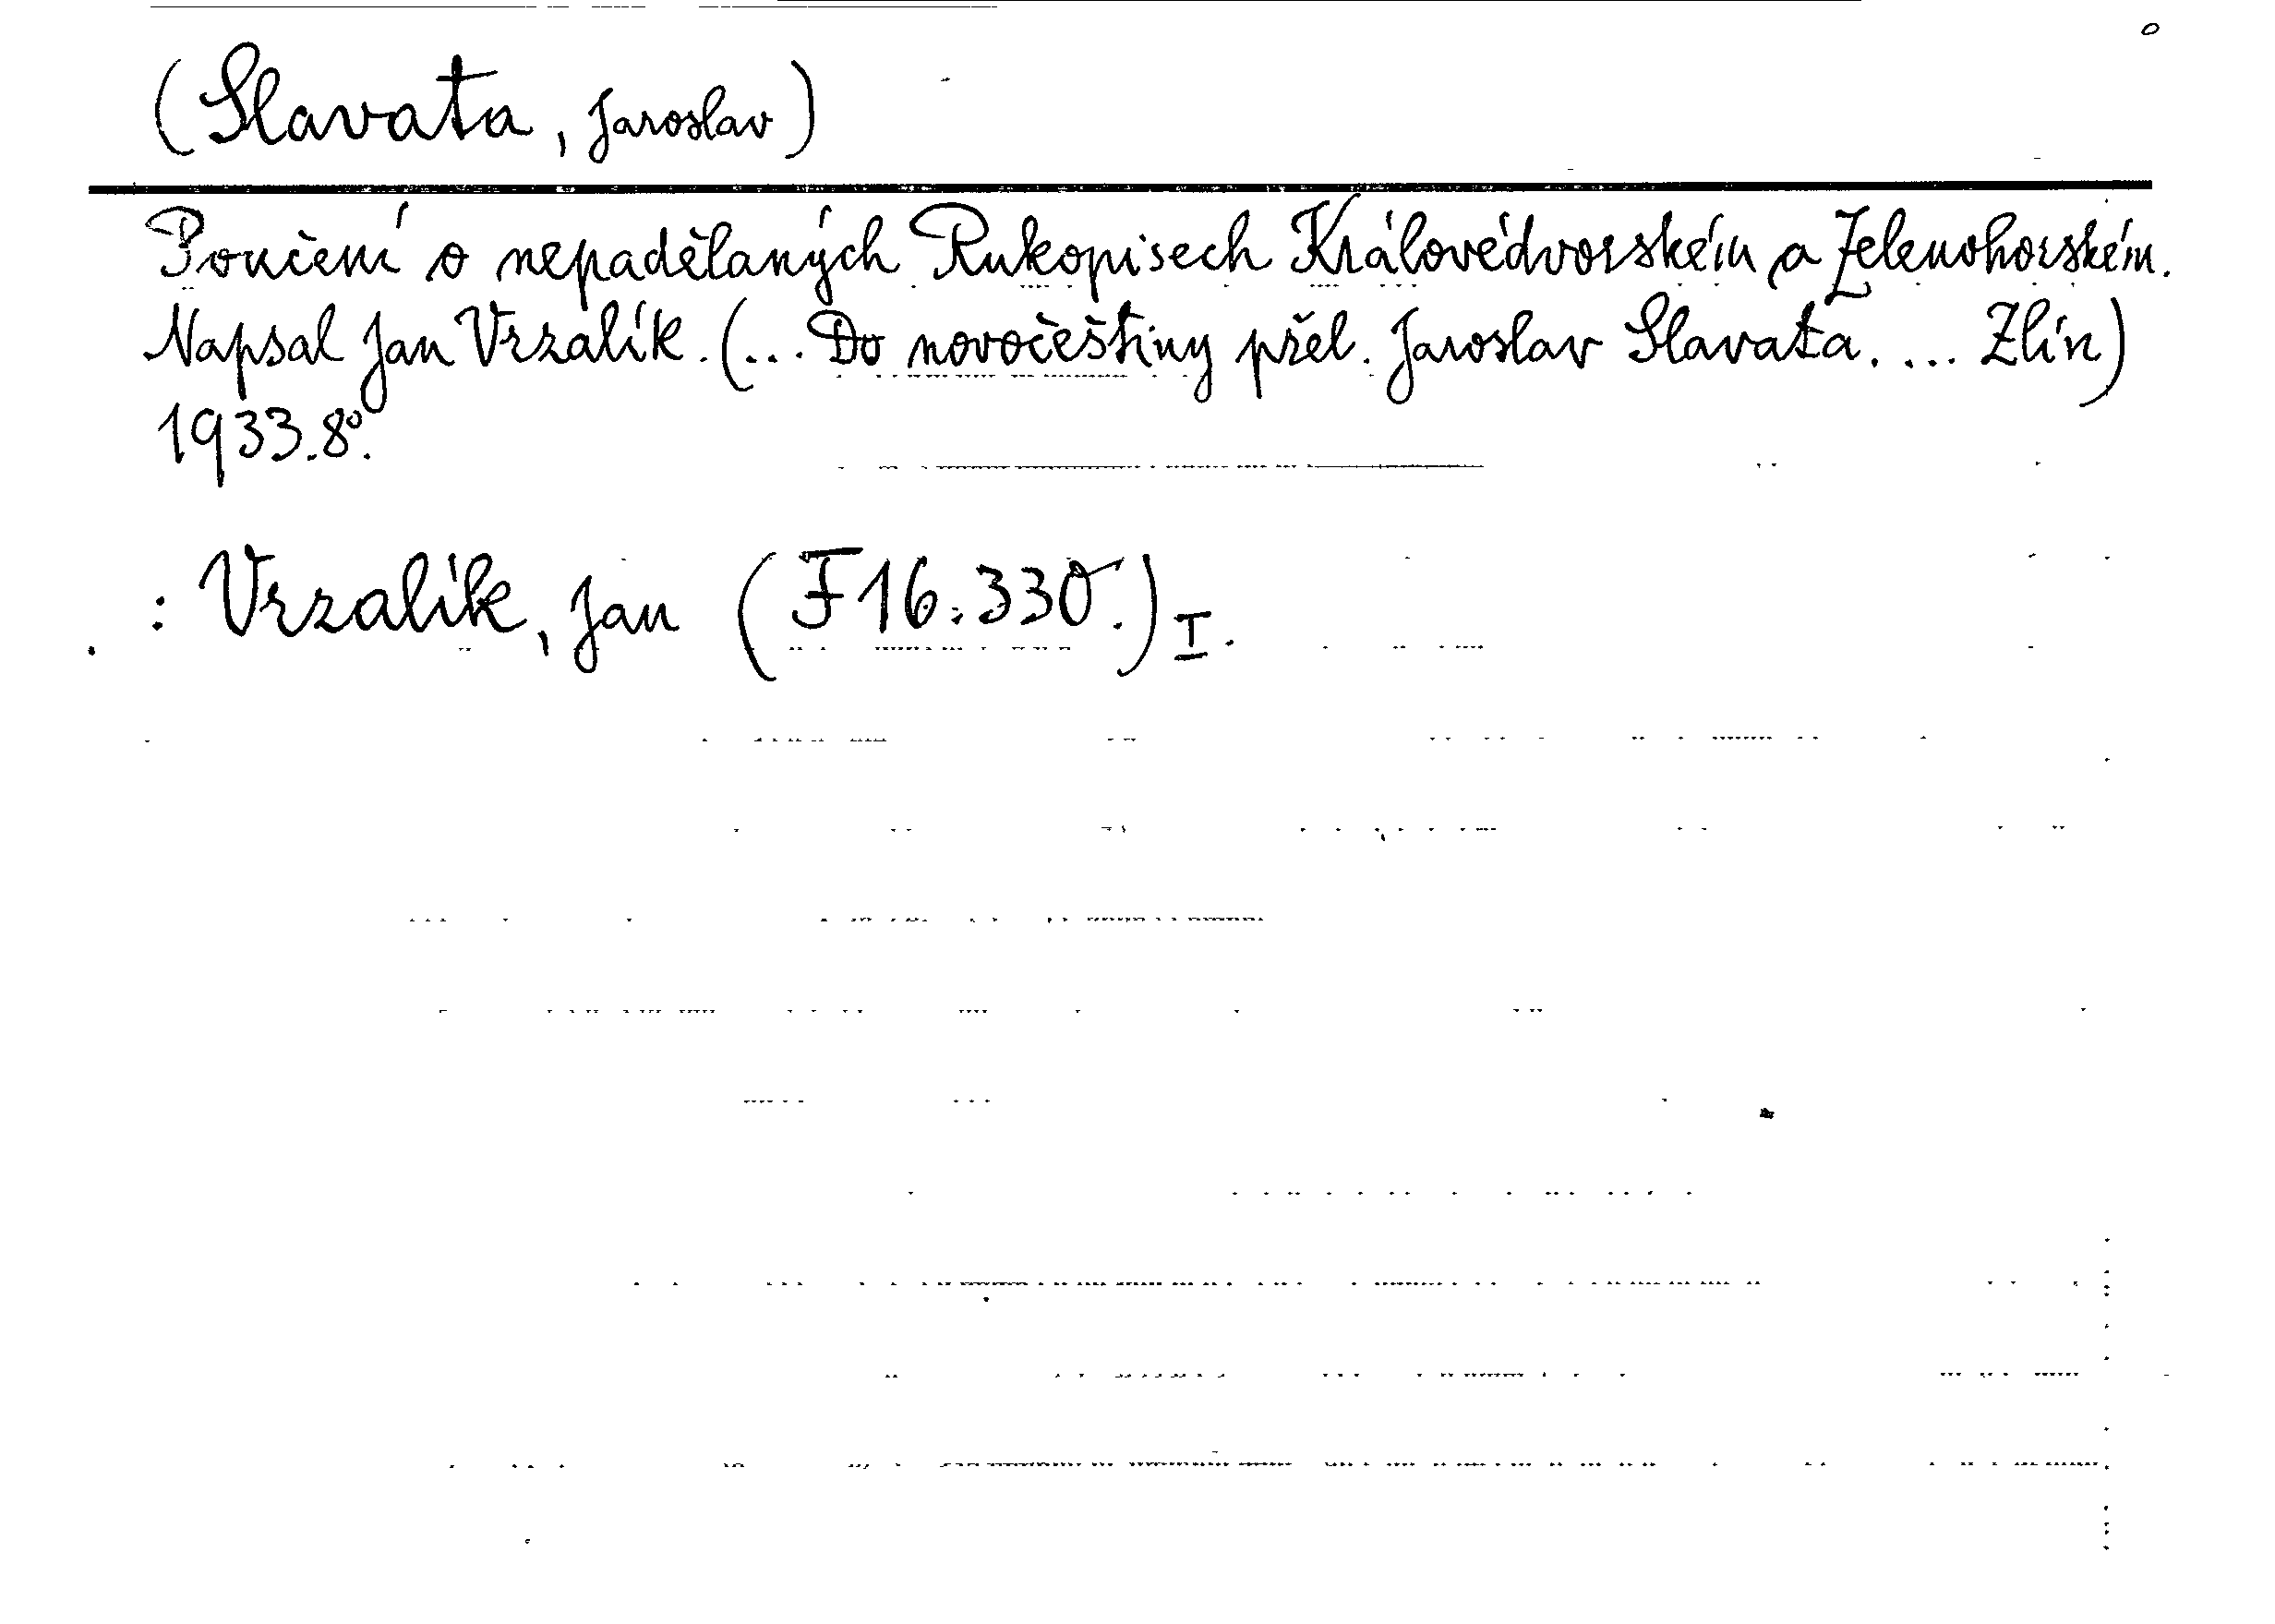 (Slavata, Jaroslav)
Poučení o nepadělaných Rukopisech Královédvorském a Zelenohorském.
Napsal Jan Vrzalík. (... Do novočeštiny přel. Jaroslav Slavata. ... Zlín)
1933. 8°.
: Vrzalík, Jan (F 16.330.) I.